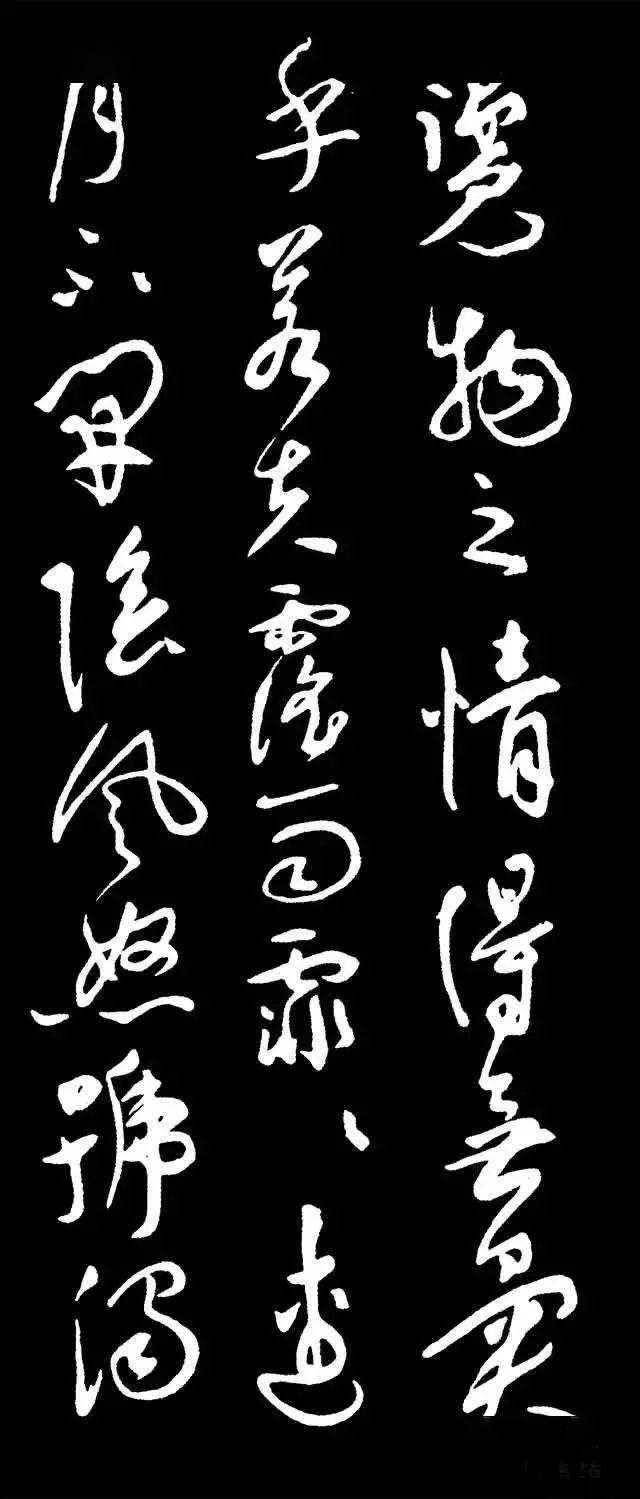 覽物之情得無異
乎若夫霪雨霏〻連
月不開陰風怒號濁